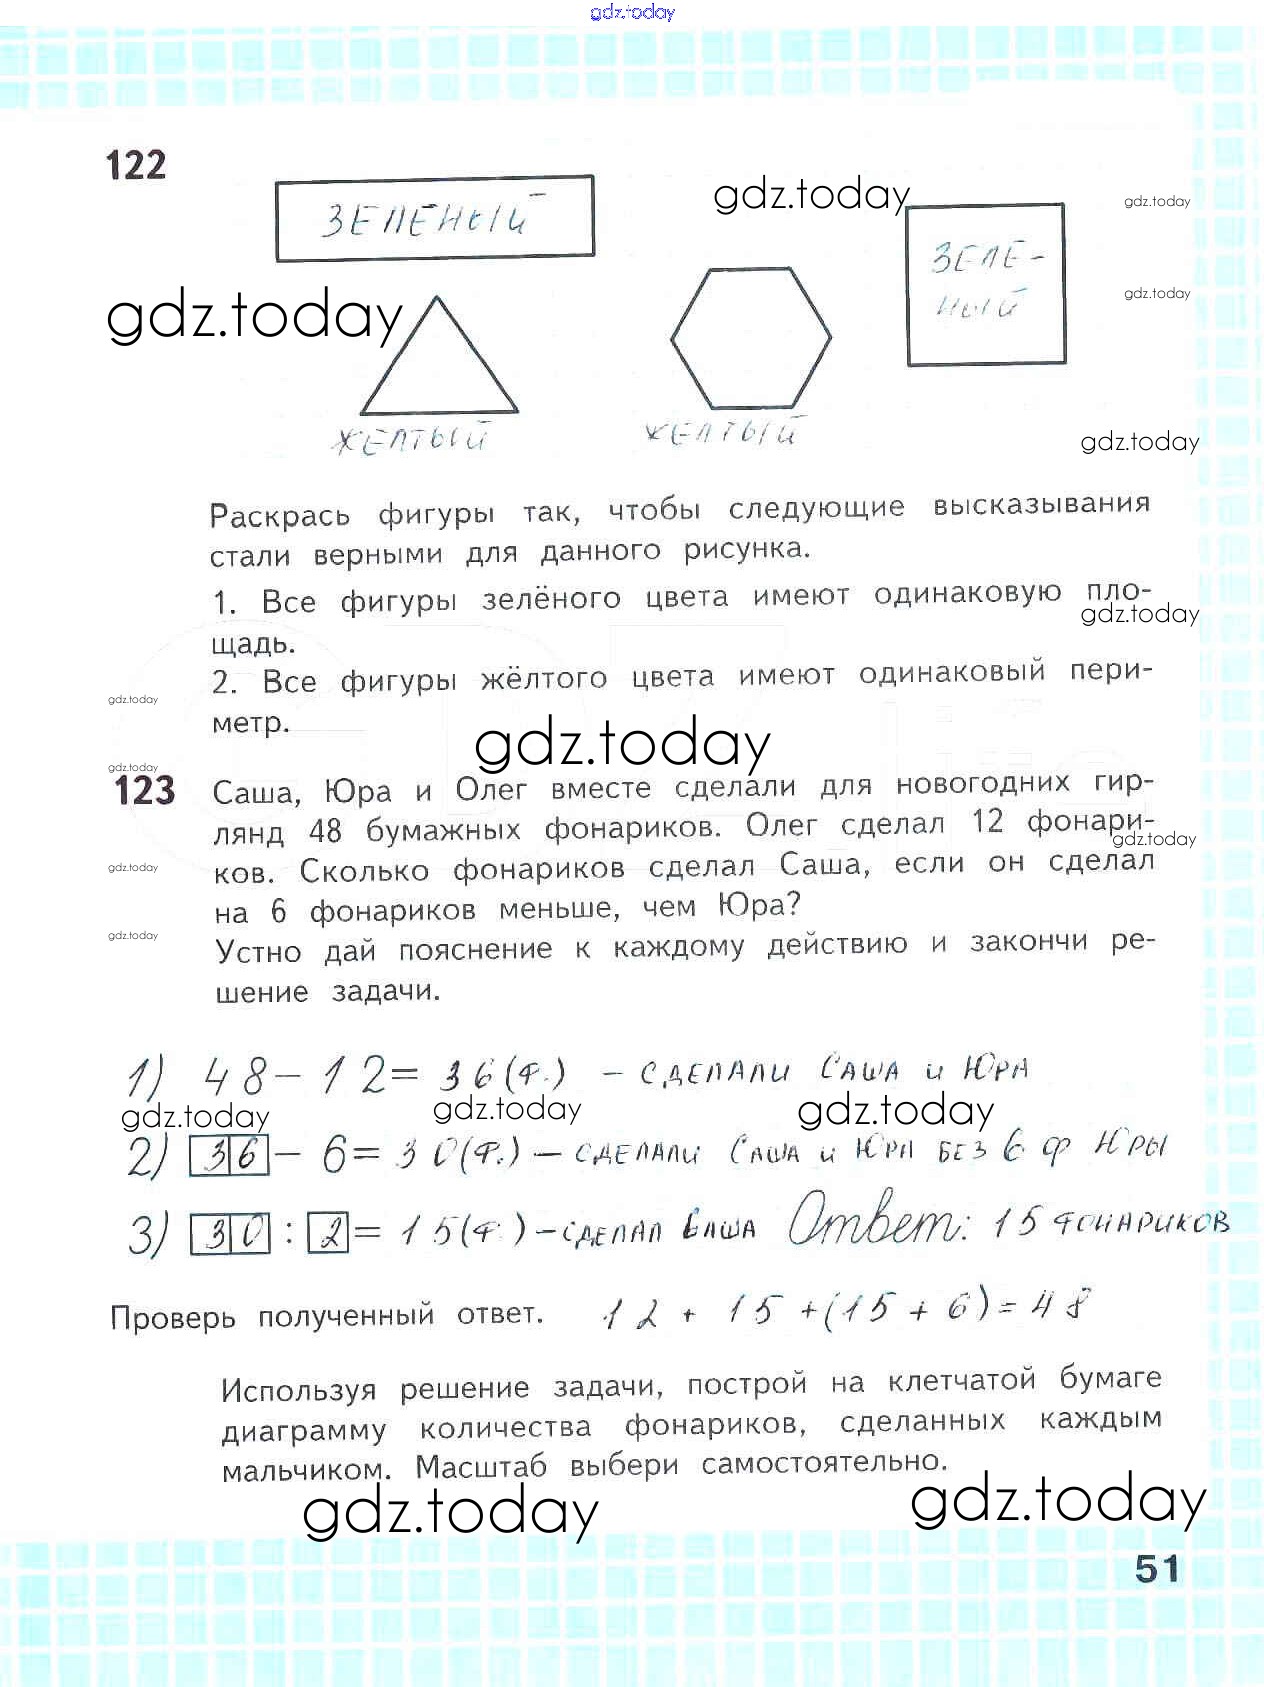 gdz.today
122
ЗЕЛЁНЫЙ
gdz.today
gdz.today
ЗЕЛЕ-
НЫЙ
gdz.today
gdz.today
ЖЕЛТЫЙ
ЖЕЛТЫЙ
gdz.today
Раскрась фигуры так, чтобы следующие высказывания
стали верными для данного рисунка.
1. Все фигуры зелёного цвета имеют одинаковую пло-
gdz.today
щадь.
2. Все фигуры жёлтого цвета имеют одинаковый пери-
gdz.today
метр.
gdz.today
gdz.today
123 Саша, Юра и Олег вместе сделали для новогодних гир-
лянд 48 бумажных фонариков. Олег сделал 12 фонари-
gdz.today
ков. Сколько фонариков сделал Саша, если он сделал
gdz.today
на 6 фонариков меньше, чем Юра?
gdz.today
Устно дай пояснение к каждому действию и закончи ре-
шение задачи.
1) 48 - 12 = 36 (ф.) - СДЕЛАЛИ САША И ЮРА
gdz.today gdz.today gdz.today
2) 36 - 6 = 30 (ф.) - СДЕЛАЛИ САША И ЮРА БЕЗ 6 ф ЮРЫ
3) 30 : 2 = 15 (ф.) - СДЕЛАЛ САША Ответ: 15 ФОНАРИКОВ
Проверь полученный ответ. 12 + 15 + (15 + 6) = 48
Используя решение задачи, построй на клетчатой бумаге
диаграмму количества фонариков, сделанных каждым
мальчиком. Масштаб выбери самостоятельно.
gdz.today gdz.today
51